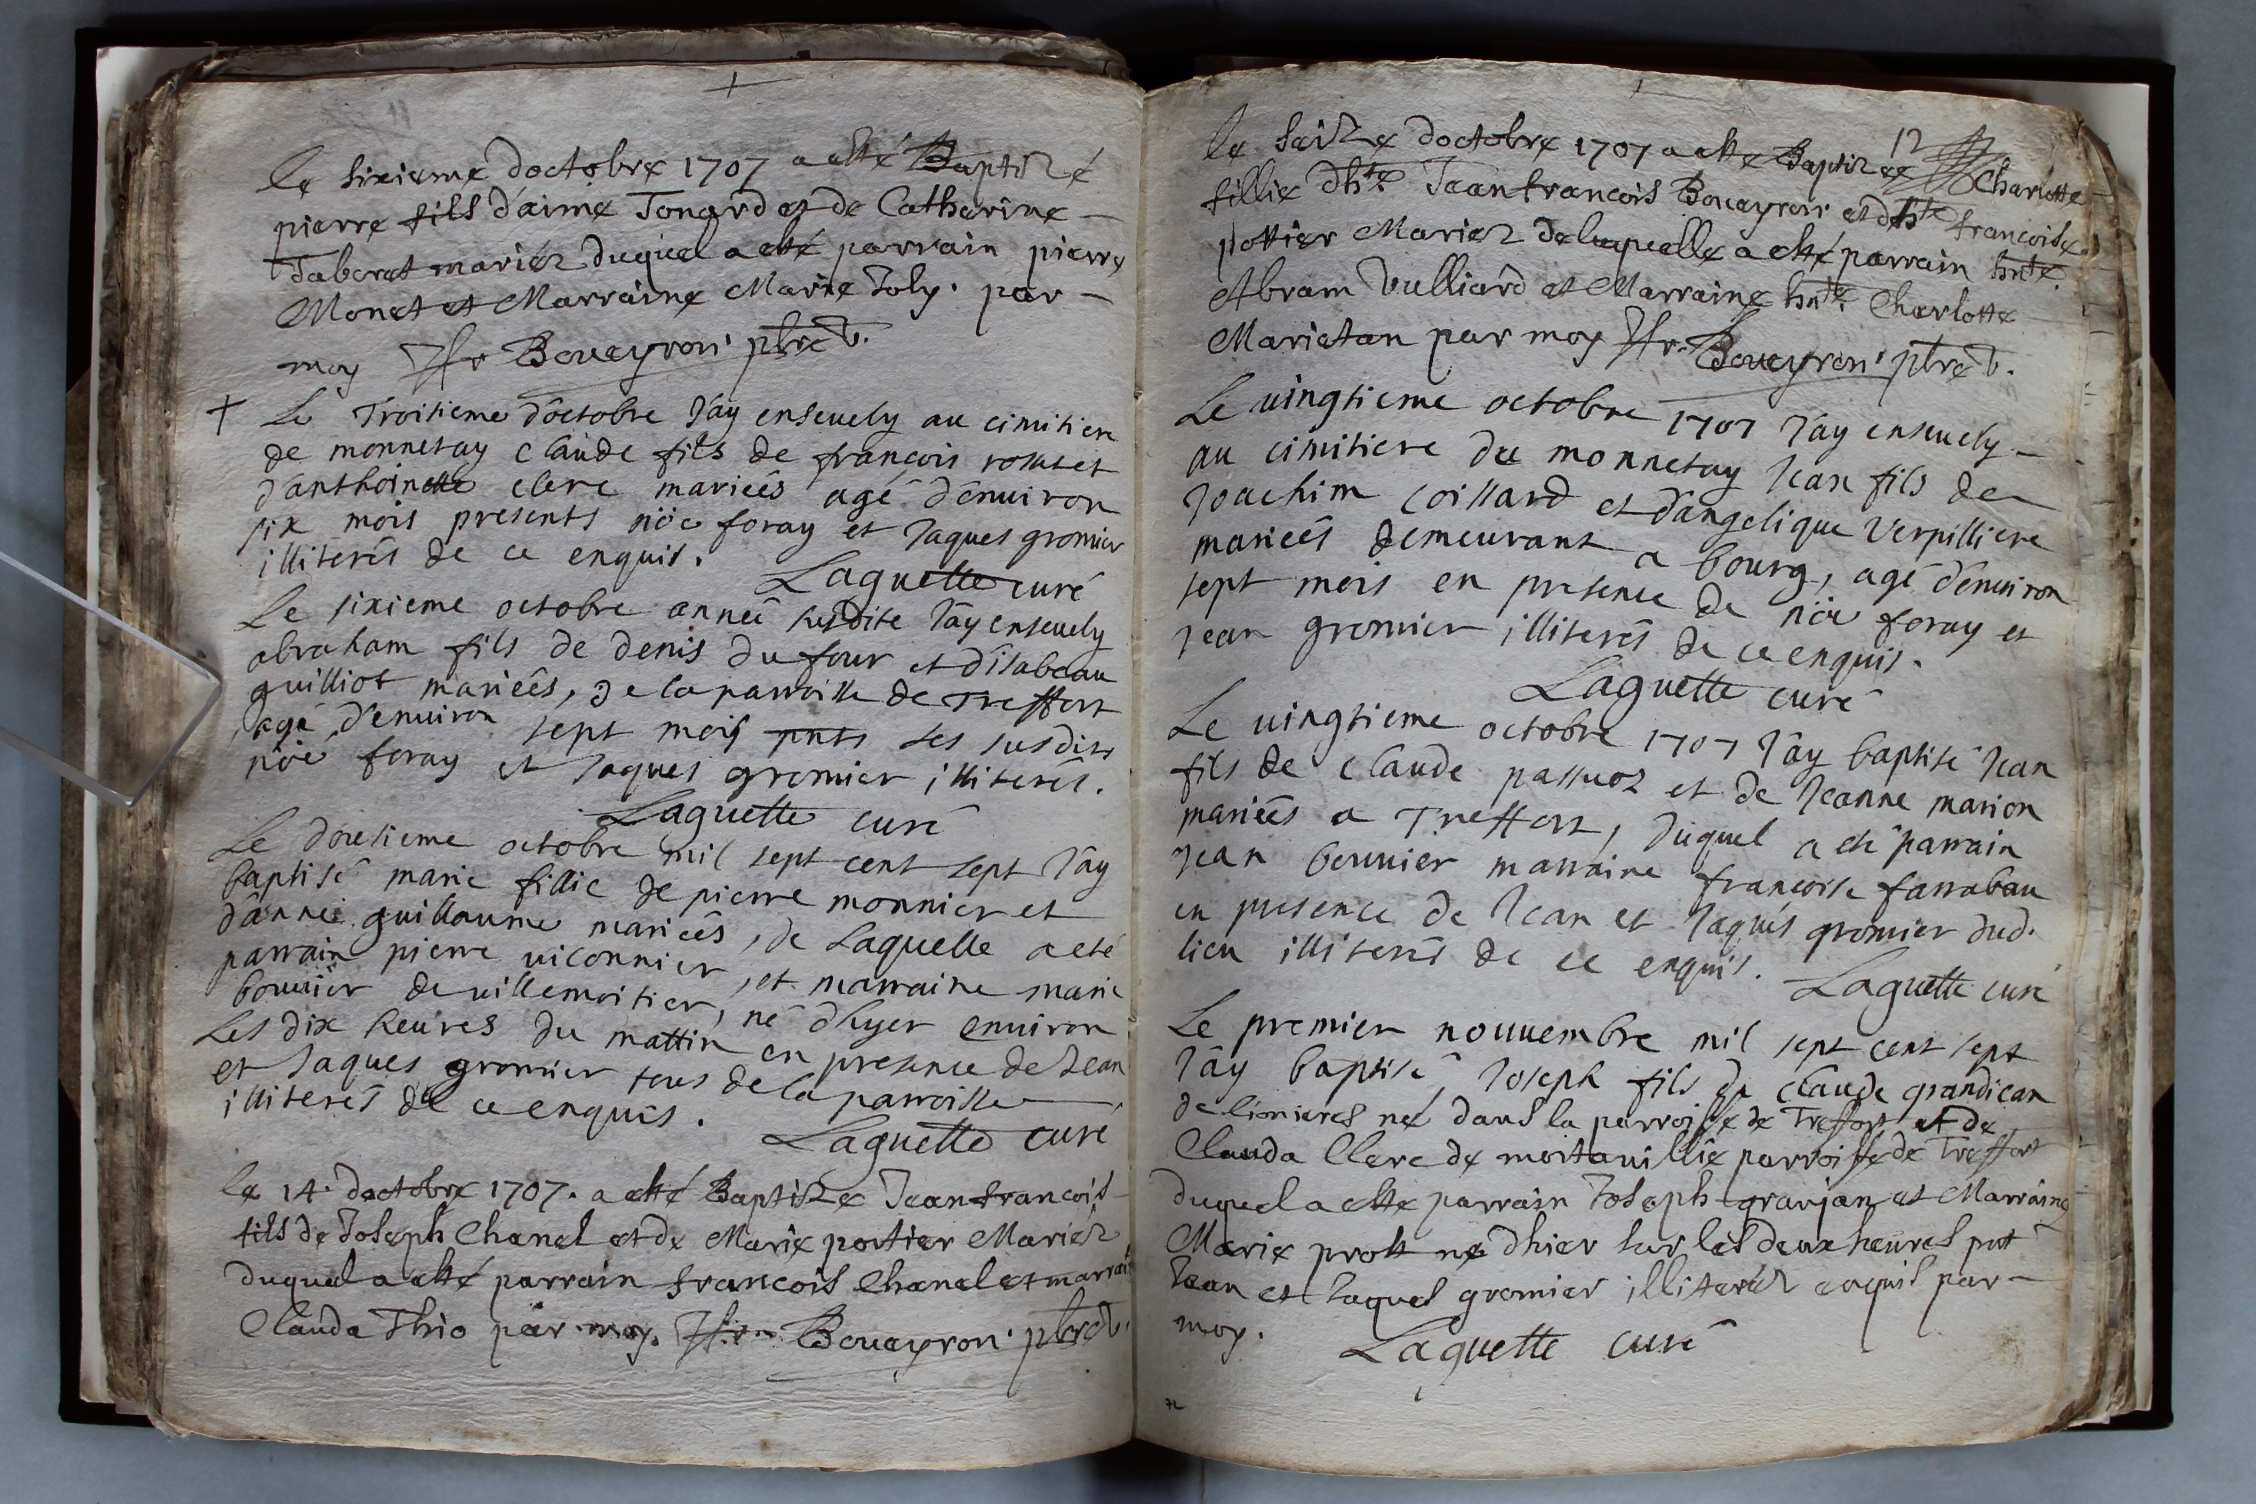 11
le sixieme doctobre 1707 a esté Baptizé
pierre fils d'aime Tonard et de Catharine
Taberet mariéz duquel a esté parrain pierre
Monet et Marraine Marie Joly. par
moy Jfr Boueyron pbre v.
Le Troisieme d'octobre J'ay enseuely au cimitiere
de monnetay Claude fils de françois et
d'anthoinette clerc mariés agé d'enuiron
six mois presents nöe foray et Jaques gromier
illiterés de ce enquis.
Laguette curé
Le sixieme octobre année susdite J'ay enseuely
abraham fils de denis dufour et d'isabeau
guilliot mariéés, de la parroisse de Treffort
agé d'enuiron sept mois pnts les susdits
nöe foray et Jaques gromier illiterés.
Laguette curé
Le douzieme octobre mil sept cent sept J'ay
baptisé marie fillie de pierre monnier et
d'anne guillaume mariéés, de Laquelle a eté
parrain pierre uiconnier, et marraine marie
bouuier de uillemoitier, né d'hyer enuiron
les dix heures du mattin en presence de Jean
et Jaques gromier tous de la parroisse
illiterés de ce enquis.
Laguette curé
le 14. doctobre 1707. a esté Baptize Jeanfrancois
fils de Joseph Chanel et de Marie portier Mariéz
duquel a esté parrain francois Chanel et marrai
Clauda Thio par moy. Jfr Boueyron pbre v.
12
le seize doctobre 1707 a esté Baptizee Charlotte
fillie dhte. Jeanfrancois Boueyron et dhte francoise
pottier Mariez de laquelle a esté parrain hnte.
Abram Vulliard et Marraine hnte. Charlotte
Marietan par moy Jfr. Boueyron pbre v.
Le uingtieme octobre 1707 J'ay enseuely
au cimitiere du monnetay Jean fils de
Joachim Coillard et d'angelique Verpilliere
mariéés demeurant a bourg, agé d'enuiron
sept mois en presence de nöe foray et
Jean gromier illiterés de ce enquis.
Laguette curé
Le uingtieme octobre 1707 J'ay baptisé Jean
fils de Claude passuoz et de Jeanne marion
mariéés a Treffort, duquel a eté parrain
Jean bouuier marraine francoise farrabau
en presence de Jean et Jaques gromier dud.
lieu illiterés de ce enquis.
Laguette curé
Le premier nouuembre mil sept cent sept
J'ay baptisé, Joseph fils de Claude grandiean
de lionieres né dans la parroisse de Treffort et de
Clauda Clerc de montauillie parroisse de Treffort
duquel a esté parrain Joseph granjan et Marraine
Marie prost né dhier sur les deux heures pnt
Jean et Jaques gromier illiteréz enquis par
moy.
Laguette curé